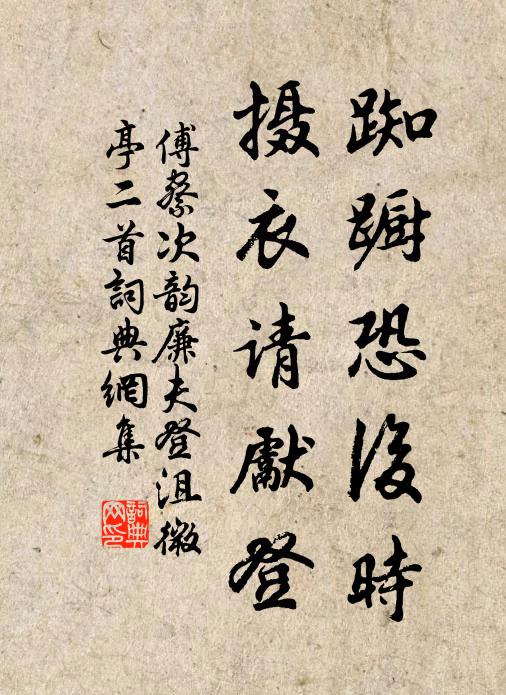 踟蹰恐後時
摄衣请獻登
傅察次韵廉夫登沮徽
亭二首詞典網集
詞典網印